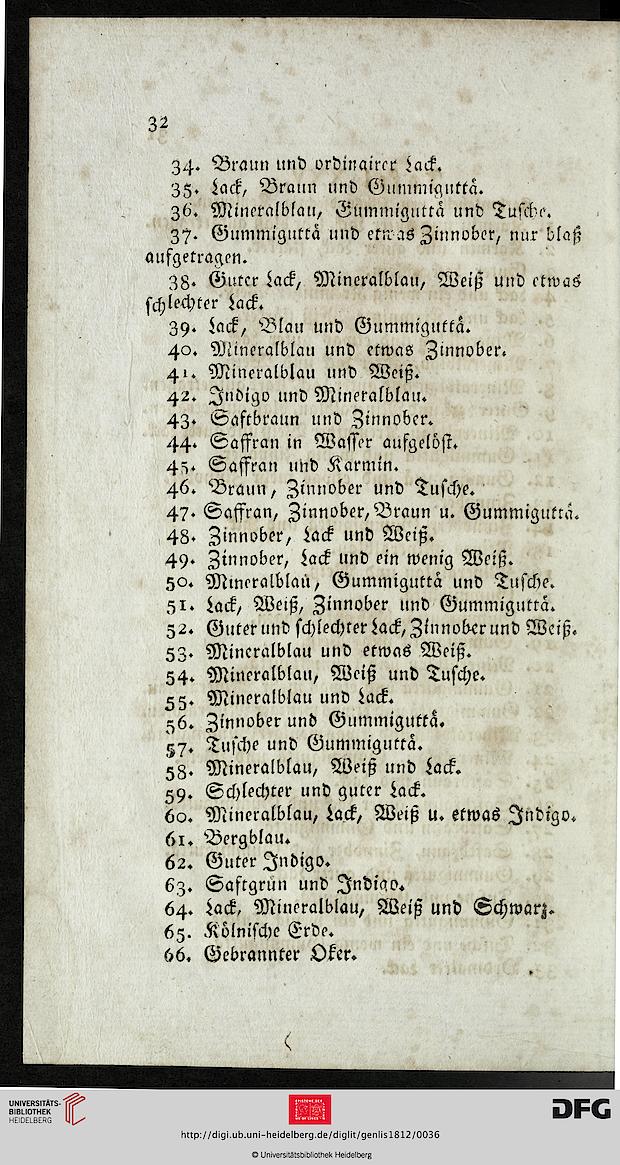 32
34. Braun und ordinairer Lack.
35. Lack, Braun und Gummiguttä.
36. Mineralblau, Gummiguttä und Tusche.
37. Gummiguttä und etwas Zinnober, nur blaß
aufgetragen.
38. Guter Lack, Mineralblau, Weiß und etwas
schlechter Lack.
39. Lack, Blau und Gummiguttä.
40. Mineralblau und etwas Zinnober.
41. Mineralblau und Weiß.
42. Indigo und Mineralblau.
43. Saftbraun und Zinnober.
44. Saffran in Wasser aufgelöst.
45. Saffran und Karmin.
46. Braun, Zinnober und Tusche.
47. Saffran, Zinnober, Braun u. Gummiguttä.
48. Zinnober, Lack und Weiß.
49. Zinnober, Lack und ein wenig Weiß.
50. Mineralblau, Gummiguttä und Tusche.
51. Lack, Weiß, Zinnober und Gummiguttä.
52. Guter und schlechter Lack, Zinnober und Weiß.
53. Mineralblau und etwas Weiß.
54. Mineralblau, Weiß und Tusche.
55. Mineralblau und Lack.
56. Zinnober und Gummiguttä.
57. Tusche und Gummiguttä.
58. Mineralblau, Weiß und Lack.
59. Schlechter und guter Lack.
60. Mineralblau, Lack, Weiß u. etwas Indigo.
61. Bergblau.
62. Guter Indigo.
63. Saftgrün und Indigo.
64. Lack, Mineralblau, Weiß und Schwarz.
65. Kölnische Erde.
66. Gebrannter Oker.
UNIVERSITÄTS-
BIBLIOTHEK
HEIDELBERG
DFG
http://digi.ub.uni-heidelberg.de/diglit/genlis1812/0036
© Universitätsbibliothek Heidelberg